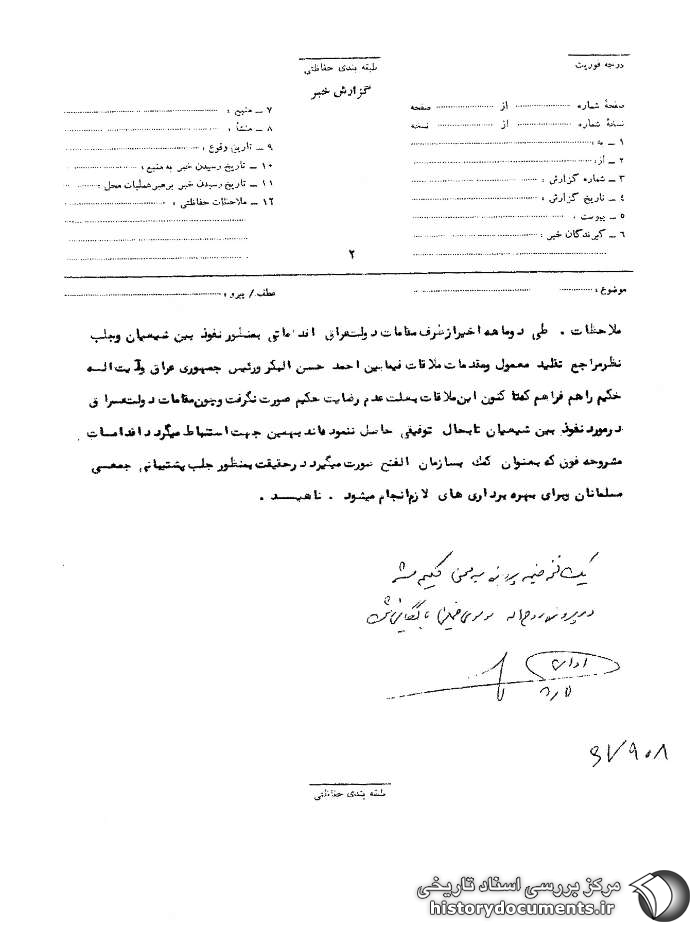 درجه فوریت
طبقه بندی حفاظتی
گزارش خبر
صفحهٔ شماره از صفحه
نسخهٔ شماره از نسخه
۱ ــ به :
۲ ــ از :
۳ ــ شماره گزارش :
۴ ــ تاریخ گزارش :
۵ ــ پیوست :
۶ ــ گیرندگان خبر :
۷ ــ منبع :
۸ ــ منشأ :
۹ ــ تاریخ وقوع :
۱۰ ــ تاریخ رسیدن خبر به منبع :
۱۱ ــ تاریخ رسیدن خبر برهبر عملیات محل :
۱۲ ــ ملاحظات حفاظتی :
۲
موضوع : عطف / پیرو :
ملاحظات . طی دوماهه اخیر از طرف مقامات دولت عراق اقداماتی بمنظور نفوذ بین شیعیان وجلب
نظر مراجع تقلید معمول ومقدمات ملاقات فیمابین احمد حسن البکر ورئیس جمهوری عراق وآیت اله
حکیم راهم فراهم که تا کنون این ملاقات بعلت عدم رضایت حکیم صورت نگرفت وچون مقامات دولت عراق
درمورد نفوذ بین شیعیان تابحال توفیقی حاصل ننموده اند بهمین جهت استنباط میگردد اقدامات
مشروحه فوق که بعنوان کمک بسازمان الفتح صورت میگیرد در حقیقت بمنظور جلب پشتیبانی جمعی
مسلمانان وبرای بهره برداری های لازم انجام میشود . ناهید .
یک نسخه ضمیمه پرونده محسن حکیم شد
در پرونده روح اله موسوی خمینی بایگانی شد
طبقه بندی حفاظتی
مرکز بررسی اسناد تاریخی
historydocuments.ir